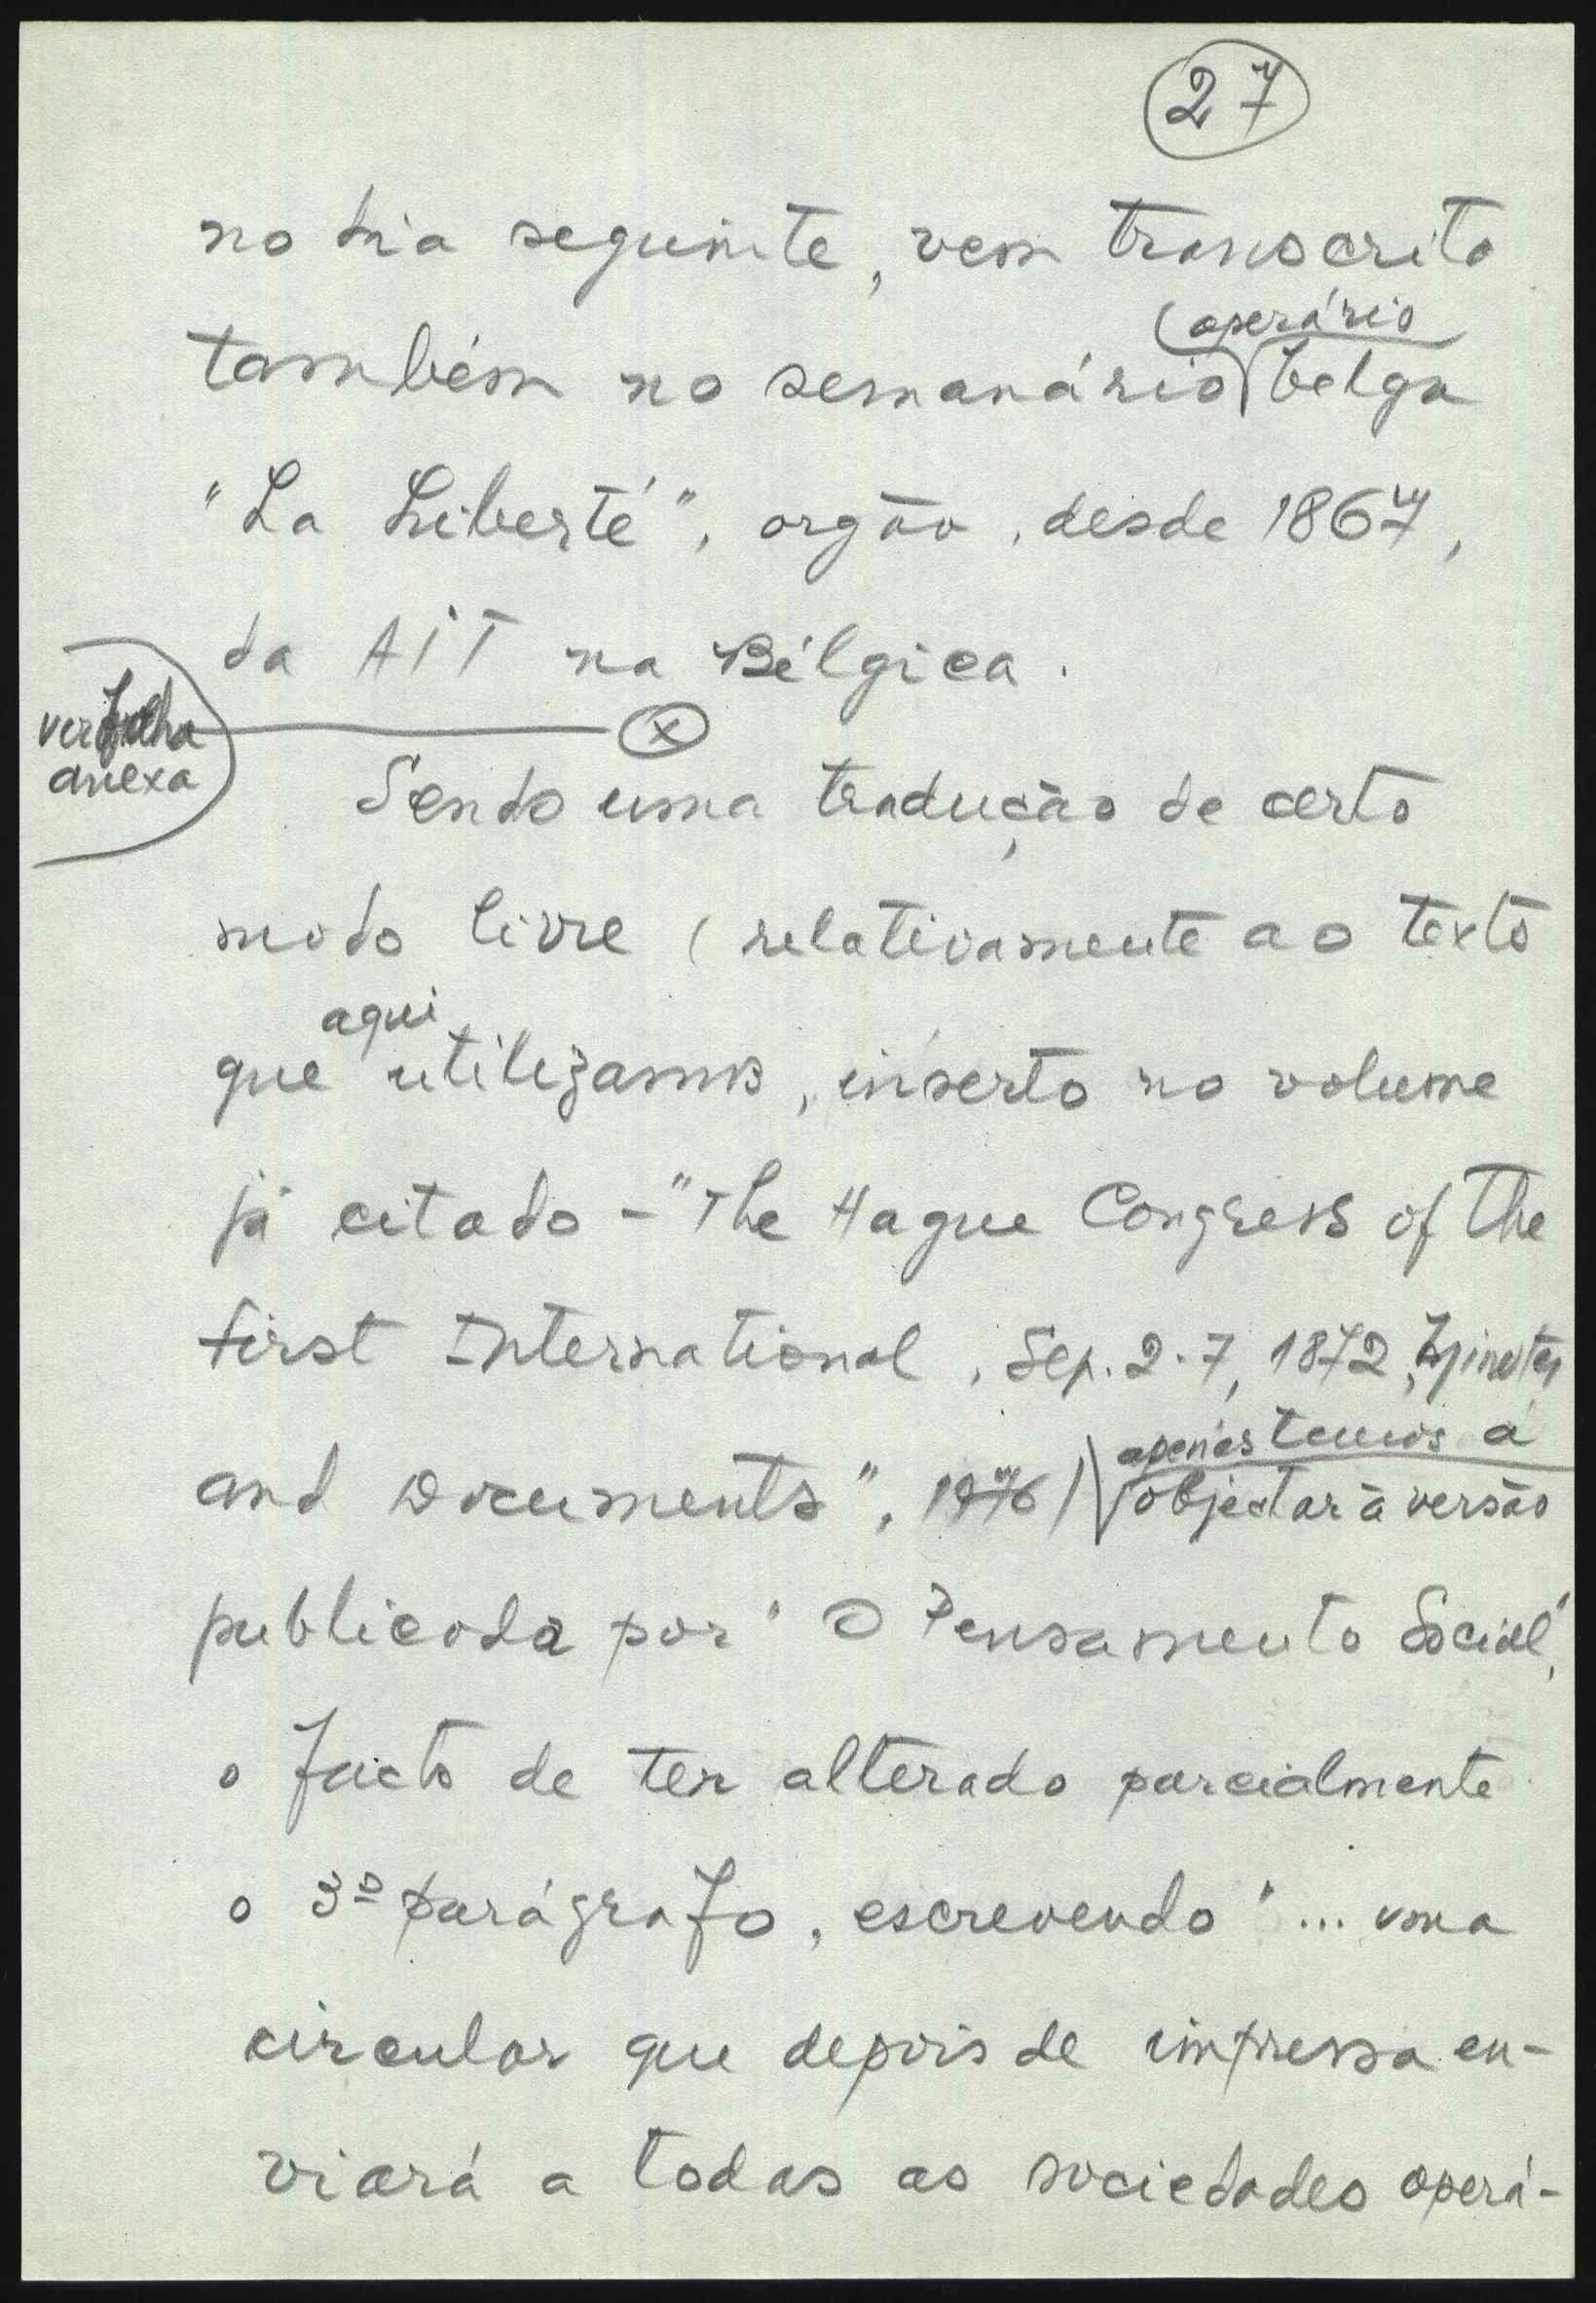 27
no dia seguinte, vem transcrito
(operário
também no semanário belga
"La Liberté", orgão, desde 1867,
da AIT na Bélgica.
ver folha
anexa
x
Sendo uma tradução de certo
modo livre (relativamente ao texto
aqui
que utilizamos, inserto no volume
já citado - "The Hague Congress of the
first International, Sep. 2-7, 1872, Minutes
and Documents", 1976) apenas temos a
objectar à versão
publicada por "O Pensamento Social",
o facto de ter alterado parcialmente
o 3º parágrafo, escrevendo "... uma
circular que depois de impressa en-
viará a todas as sociedades operá-